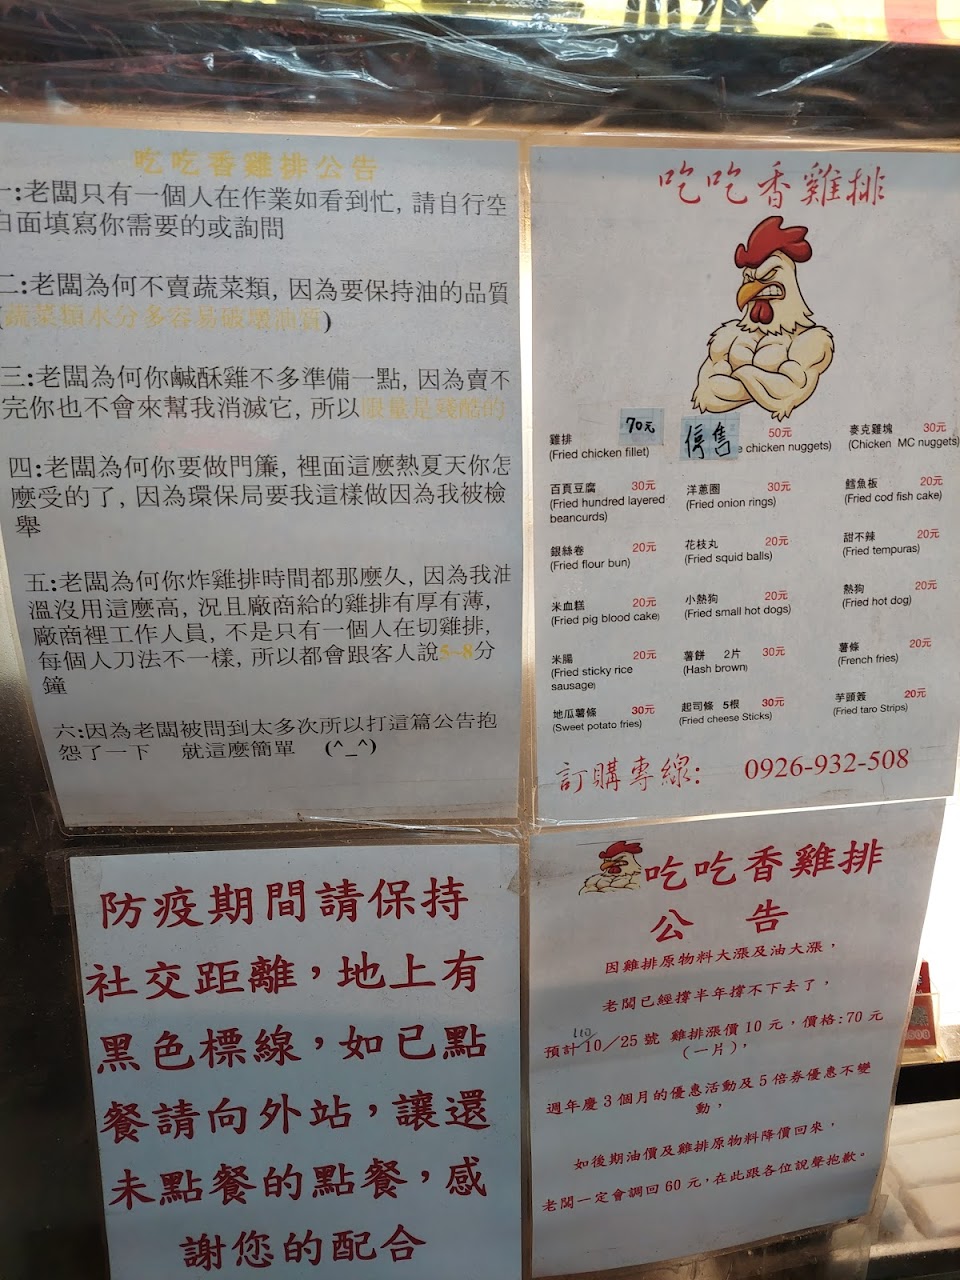 吃吃香雞排公告
一:老闆只有一個人在作業如看到忙, 請自行空
白面填寫你需要的或詢問
二:老闆為何不賣蔬菜類, 因為要保持油的品質
(蔬菜類水分多容易破壞油質)
三:老闆為何你鹹酥雞不多準備一點, 因為賣不
完你也不會來幫我消滅它, 所以限量是殘酷的
四:老闆為何你要做門簾, 裡面這麼熱夏天你怎
麼受的了, 因為環保局要我這樣做因為我被檢
舉
五:老闆為何你炸雞排時間都那麼久, 因為我油
溫沒用這麼高, 況且廠商給的雞排有厚有薄,
廠商裡工作人員, 不是只有一個人在切雞排,
每個人刀法不一樣, 所以都會跟客人說5~8分
鐘
六:因為老闆被問到太多次所以打這篇公告抱
怨了一下 就這麼簡單 (^_^)
吃吃香雞排
雞排 70元
(Fried chicken fillet)
停售 50元
e chicken nuggets)
麥克雞塊 30元
(Chicken MC nuggets)
百頁豆腐 30元
(Fried hundred layered
beancurds)
洋蔥圈 30元
(Fried onion rings)
鱈魚板 20元
(Fried cod fish cake)
銀絲卷 20元
(Fried flour bun)
花枝丸 20元
(Fried squid balls)
甜不辣 20元
(Fried tempuras)
米血糕 20元
(Fried pig blood cake)
小熱狗 20元
(Fried small hot dogs)
熱狗 20元
(Fried hot dog)
米腸 20元
(Fried sticky rice
sausage)
薯餅 2片 30元
(Hash brown)
薯條 20元
(French fries)
地瓜薯條 30元
(Sweet potato fries)
起司條 5根 30元
(Fried cheese Sticks)
芋頭簽 20元
(Fried taro Strips)
訂購專線: 0926-932-508
防疫期間請保持
社交距離，地上有
黑色標線，如已點
餐請向外站，讓還
未點餐的點餐，感
謝您的配合
吃吃香雞排
公 告
因雞排原物料大漲及油大漲，
老闆已經撐半年撐不下去了，
預計10／25號 雞排漲價10元，價格:70元
（一片），
週年慶3個月的優惠活動及5倍券優惠不變
動，
如後期油價及雞排原物料降價回來，
老闆一定會調回60元，在此跟各位說聲抱歉。